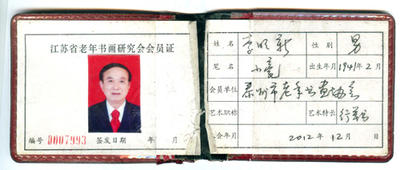 江苏省老年书画研究会会员证
编号 0007993 签发日期 年 月
姓名 李明新 性别 男
笔名 小亮 出生年月 1941年2月
会员单位 泰州市老年书画协会
艺术职称 艺术特长 行草书
入会年月 2012年12月 日